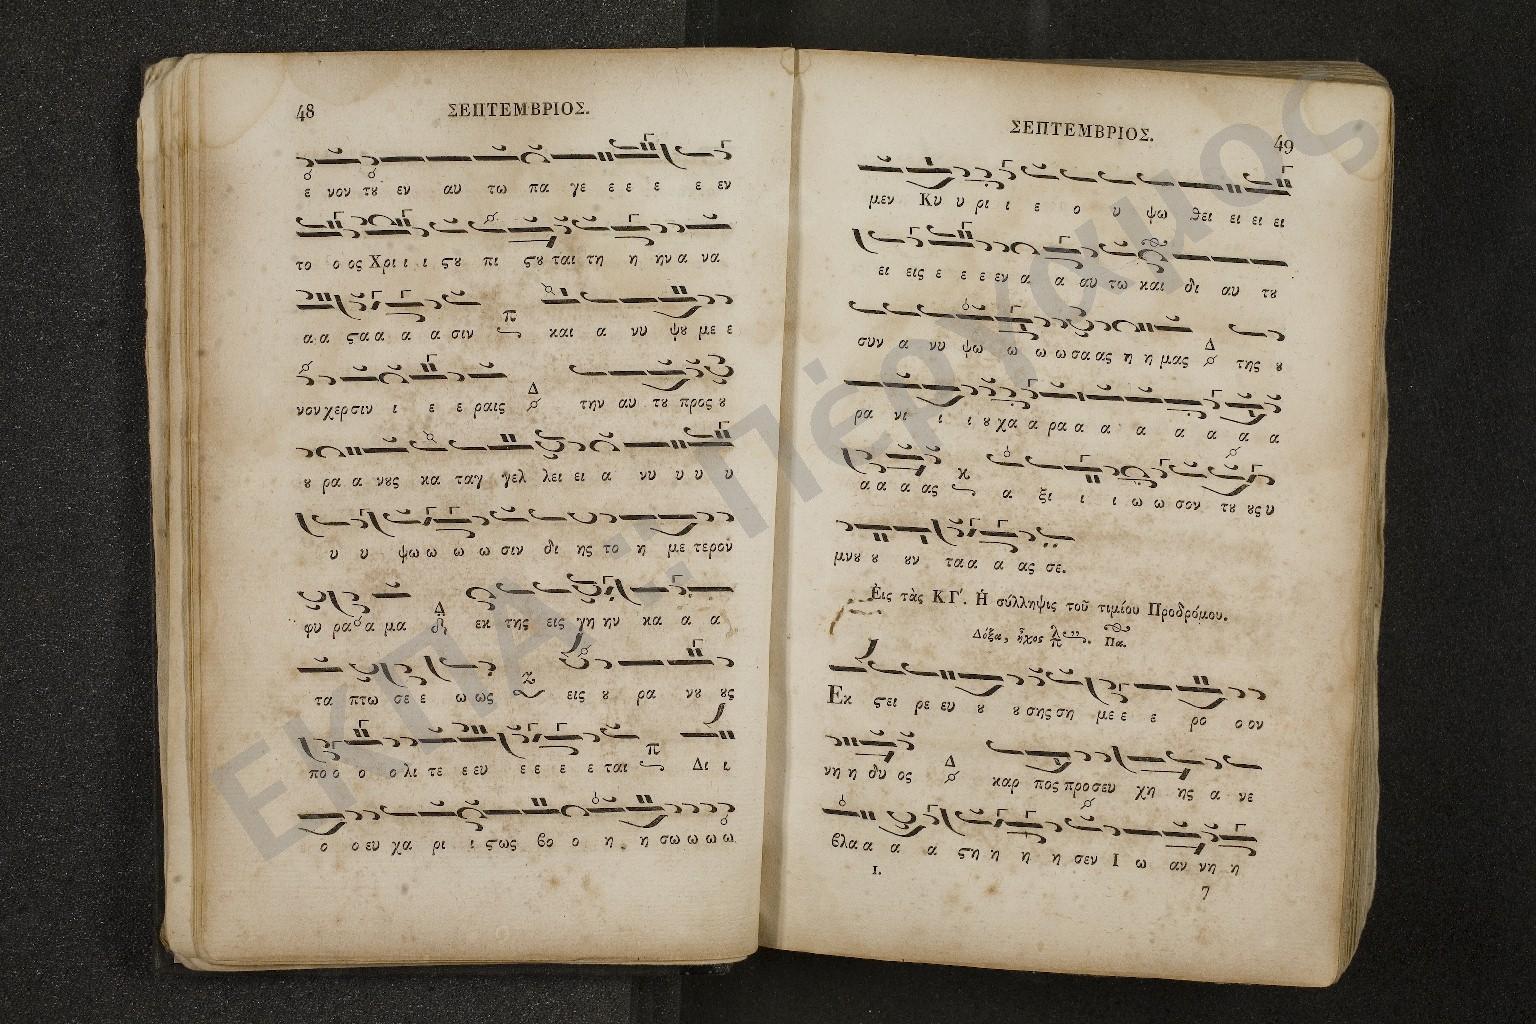 48
ΣΕΠΤΕΜΒΡΙΟΣ.
ε νον τȣ εν αυ τω πα γε ε ε ε ε εν
το ο ος Χρι ι ι ϛȣ πι ϛȣ ται τη η ην α να
α α ϛα α α α σιν π και α νυ ψȣ με ε
νον χερ σιν ι ε ε ραις Δ την αυ τȣ προς ȣ
ȣ ρα α νȣς κα ταγ γελ λει ει α νυ υ υ υ
υ υ ψω ω ω ω σιν δι ης το η με τερον
φυ ρα α α μα Δ εκ της εις γη ην κα α α
τα πτω σε ε ω ως Ζ εις ȣ ρα νȣ ȣς
πο ο ο ο λι τε ε ευ ε ε ε ε ται π Δι ι
ο ο ευ χα ρι ι ϛως βο ο η η σω ω ω ω
ΣΕΠΤΕΜΒΡΙΟΣ.
49
μεν Κυ υ ρι ι ε ο υ ψω θει ει ει ει
ει εις ε ε ε εν α α αυ τω και δι αυ τȣ
συν α νυ ψω ω ω ω σα ας η η μας Δ της ȣ
ρα νι ι ι ȣ χα α ρα α α α α α α α
α α α ας κ α ξι ι ι ω ω σον τȣ ȣς υ
μνȣ ȣ ȣν τα α α α ας σε.
Εἰς τὰς ΚΓ΄. Ἡ σύλληψις τοῦ τιμίου Προδρόμου.
Δόξα, ἦχος λ π. Πα.
Εκ ϛει ρε ευ ȣ ȣ σης ση με ε ε ρο ο ον
νη η δυ ος Δ καρ πος προσευ χη ης α νε
βλα α α α ϛη η η η σεν Ι ω αν νη η
I.
7
ΕΚΠΑ : Πέργαμος